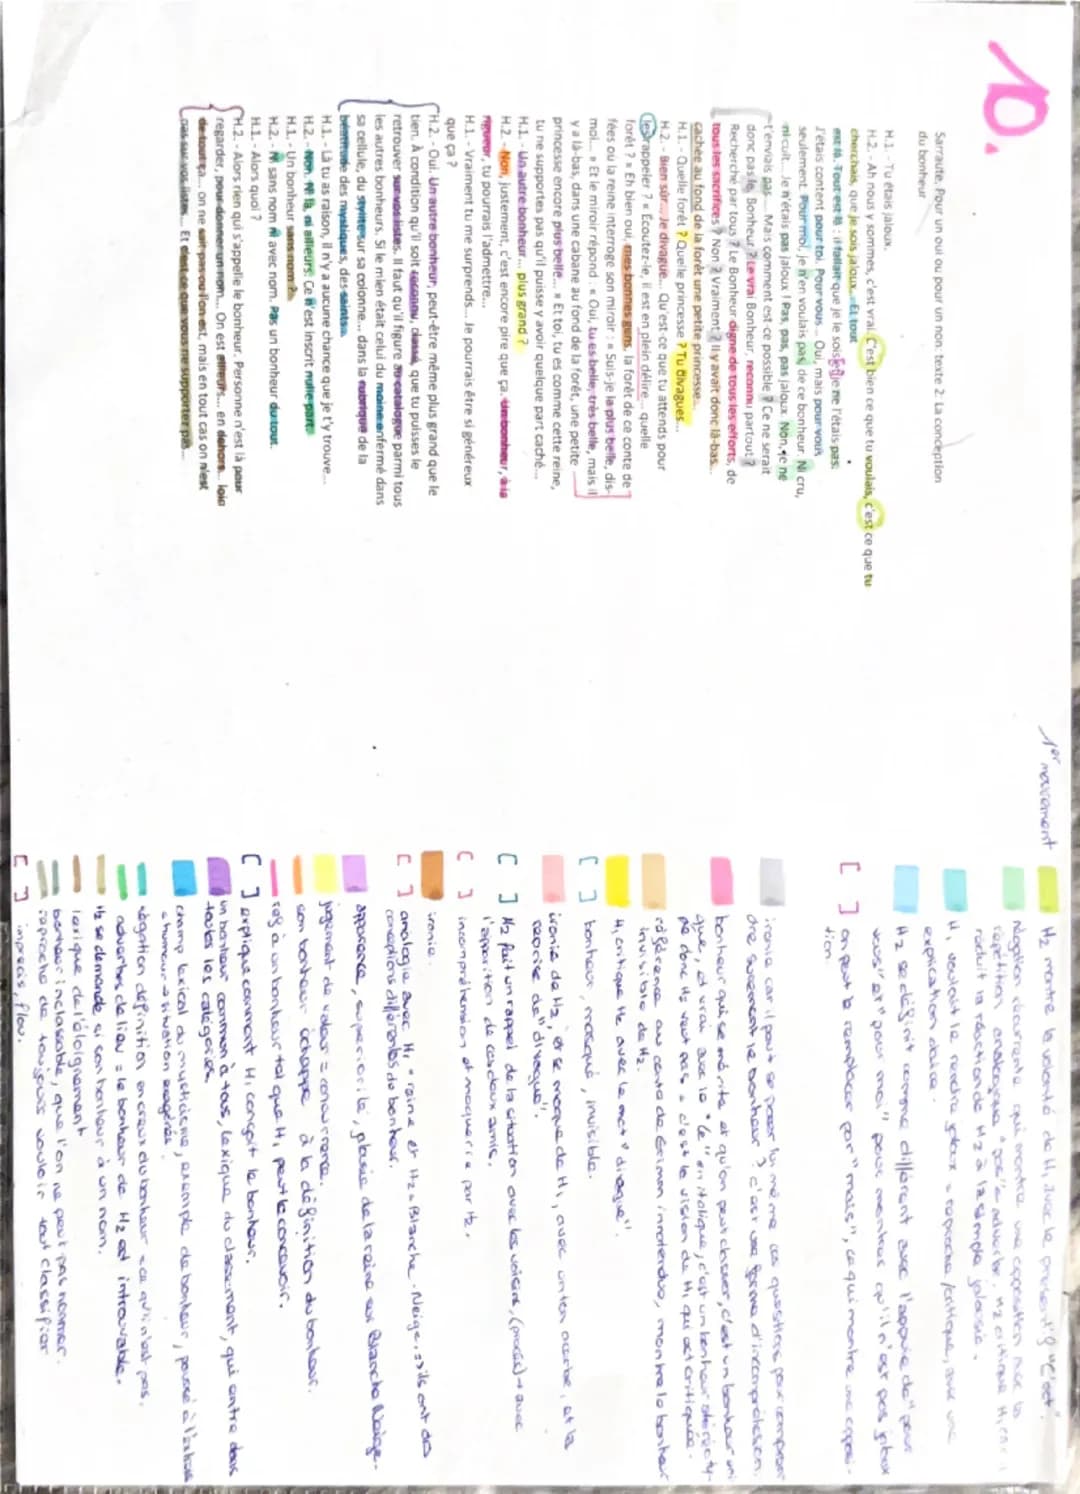 10.
Sarraute, Pour un oui ou pour un non, texte 2: La conception
du bonheur
H.1. - Tu étais jaloux.
H.2. - Ah nous y sommes, c'est vrai. C'est bien ce que tu voulais, c'est ce que tu
cherchais, que je sois jaloux... Et tout
est là. Tout est là : il fallait que je le sois et je ne l'étais pas.
J'étais content pour toi. Pour vous... Oui, mais pour vous
seulement. Pour moi, je n'en voulais pas, de ce bonheur. Ni cru,
ni cuit... Je n'étais pas jaloux ! Pas, pas, pas jaloux. Non, je ne
t'enviais pas... Mais comment est-ce possible ? Ce ne serait
donc pas le Bonheur ? Le vrai Bonheur, reconnu partout ?
Recherché par tous ? Le Bonheur digne de tous les efforts, de
tous les sacrifices ? Non ? Vraiment ? Il y avait donc là-bas...
cachée au fond de la forêt une petite princesse...
H.1. - Quelle forêt ? Quelle princesse ? Tu divagues...
H.2. - Bien sûr... Je divague... Qu'est-ce que tu attends pour
les rappeler ? « Écoutez-le, il est en plein délire... quelle
forêt ? » Eh bien oui, mes bonnes gens, la forêt de ce conte de
fées où la reine interroge son miroir : « Suis-je la plus belle, dis-
moi... » Et le miroir répond : « Oui, tu es belle, très belle, mais il
y a là-bas, dans une cabane au fond de la forêt, une petite
princesse encore plus belle... » Et toi, tu es comme cette reine,
tu ne supportes pas qu'il puisse y avoir quelque part caché...
H.1. - Un autre bonheur... plus grand ?
H.2. - Non, justement, c'est encore pire que ça. Un bonheur, à la
rigueur, tu pourrais l'admettre...
H.1. - Vraiment tu me surprends... Je pourrais être si généreux
que ça ?
H.2. - Oui. Un autre bonheur, peut-être même plus grand que le
tien. À condition qu'il soit reconnu, classé, que tu puisses le
retrouver sur vos listes. Il faut qu'il figure au catalogue parmi tous
les autres bonheurs. Si le mien était celui du moine enfermé dans
sa cellule, du stylite sur sa colonne... dans la rubrique de la
béatitude des mystiques, des saints...
H.1. - Là tu as raison, il n'y a aucune chance que je t'y trouve...
H.2. - Non. Ni là, ni ailleurs. Ce n'est inscrit nulle part.
H.1. - Un bonheur sans nom ?
H.2. - Ni sans nom ni avec nom. Pas un bonheur du tout.
H.1. - Alors quoi ?
H.2. - Alors rien qui s'appelle le bonheur. Personne n'est là pour
regarder, pour donner un nom... On est ailleurs... en dehors... loin
de tout ça... on ne sait pas où l'on est, mais en tout cas on n'est
pas sur vos listes... Et c'est ce que vous ne supportez pas...
1er mouvement
H2 montre la volonté de H1, avec le présent g "C'est".
négation récurrente qui montre une opposition avec la
répétition anaphorique "pas" adverbe. H2 critique H1 car il
réduit la réaction de H2 à la simple jalousie.
H1 voulait le rendre jaloux = reproche/critique, avec une
explication claire.
H2 se définit comme différent avec l'appuie de "pour
vous" et "pour moi" pour montrer qu'il n'est pas jaloux
[ ] on peut le remplacer par "mais", ce qui montre une opposi-
tion
ironie car il peut se poser lui même ces questions pour compren
dre surement le bonheur ? c'est une forme d'incompréhension.
bonheur qui se mérite et qu'on peut classer, c'est un bonheur uni
que, et vrai avec le "Le" en italique, c'est un bonheur stéréoty-
pe donc H2 veut pas = c'est la vision de H1 qui est critiquée.
référence au conte de Grimm inattendue, montre le bonheur
invisible de H2.
H1 critique H2 avec le mot "divague".
[ ] bonheur, masqué, invisible.
ironie de H2, et se moque de H1, avec un ton acerbe, et la
reprise de "divague".
[ ] H2 fait un rappel de la situation avec les voisins, (procès) → avec
l'apparition de ces deux amis.
[ ] incompréhension et moquerie par H2.
ironie.
[ ] analogie avec H1 = reine et H2 = Blanche-Neige, => ils ont des
conceptions différentes du bonheur.
apparence, supériorité, placée de la reine sur Blanche Neige.
jugement de valeur = concurrence.
son bonheur échappe à la définition du bonheur.
réf à un bonheur tel que H1 peut le concevoir.
[ ] explique comment H1 conçoit le bonheur.
un bonheur commun à tous, lexique du classement, qui entre dans
toutes les catégories.
champ lexical du mysticisme, exemple de bonheur, poussé à l'extrême
= humour → situation exagérés.
négation définition en creux du bonheur = ce qu'il n'est pas.
adverbes de lieu = le bonheur de H2 est introuvable.
H2 se demande si son bonheur à un nom.
lexique de l'éloignement
bonheur inclassable, que l'on ne peut pas nommer.
reproche de toujours vouloir tout classifier
[ ] imprécis, flou.